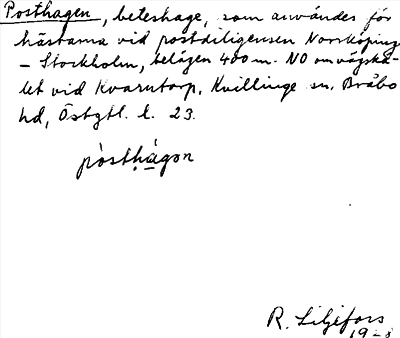 Posthagen, beteshage, som användes för
hästarna vid postdiligensen Norrköping
– Stockholm, belägen 400 m. NO om vägskä-
let vid Kvarntorp, Kvillinge sn, Bråbo
hd, Östgtl. l. 23.
pòsthạ̀gon
R. Liljefors